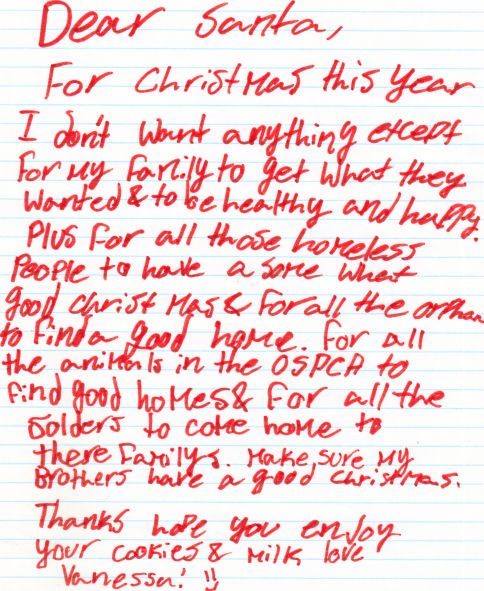 Dear Santa,
For Christmas this year
I don't want anything except
For my Family to get what they
wanted & to be healthy and happy.
Plus for all those homeless
People to have a some what
good christmas & For all the orphan
to find a good home. For all
the animals in the OSPCA to
find good homes & for all the
solders to come home to
there Familys. Make sure my
Brothers have a good christmas.
Thanks hope you enjoy
your cookies & milk love
Vanessa! :)